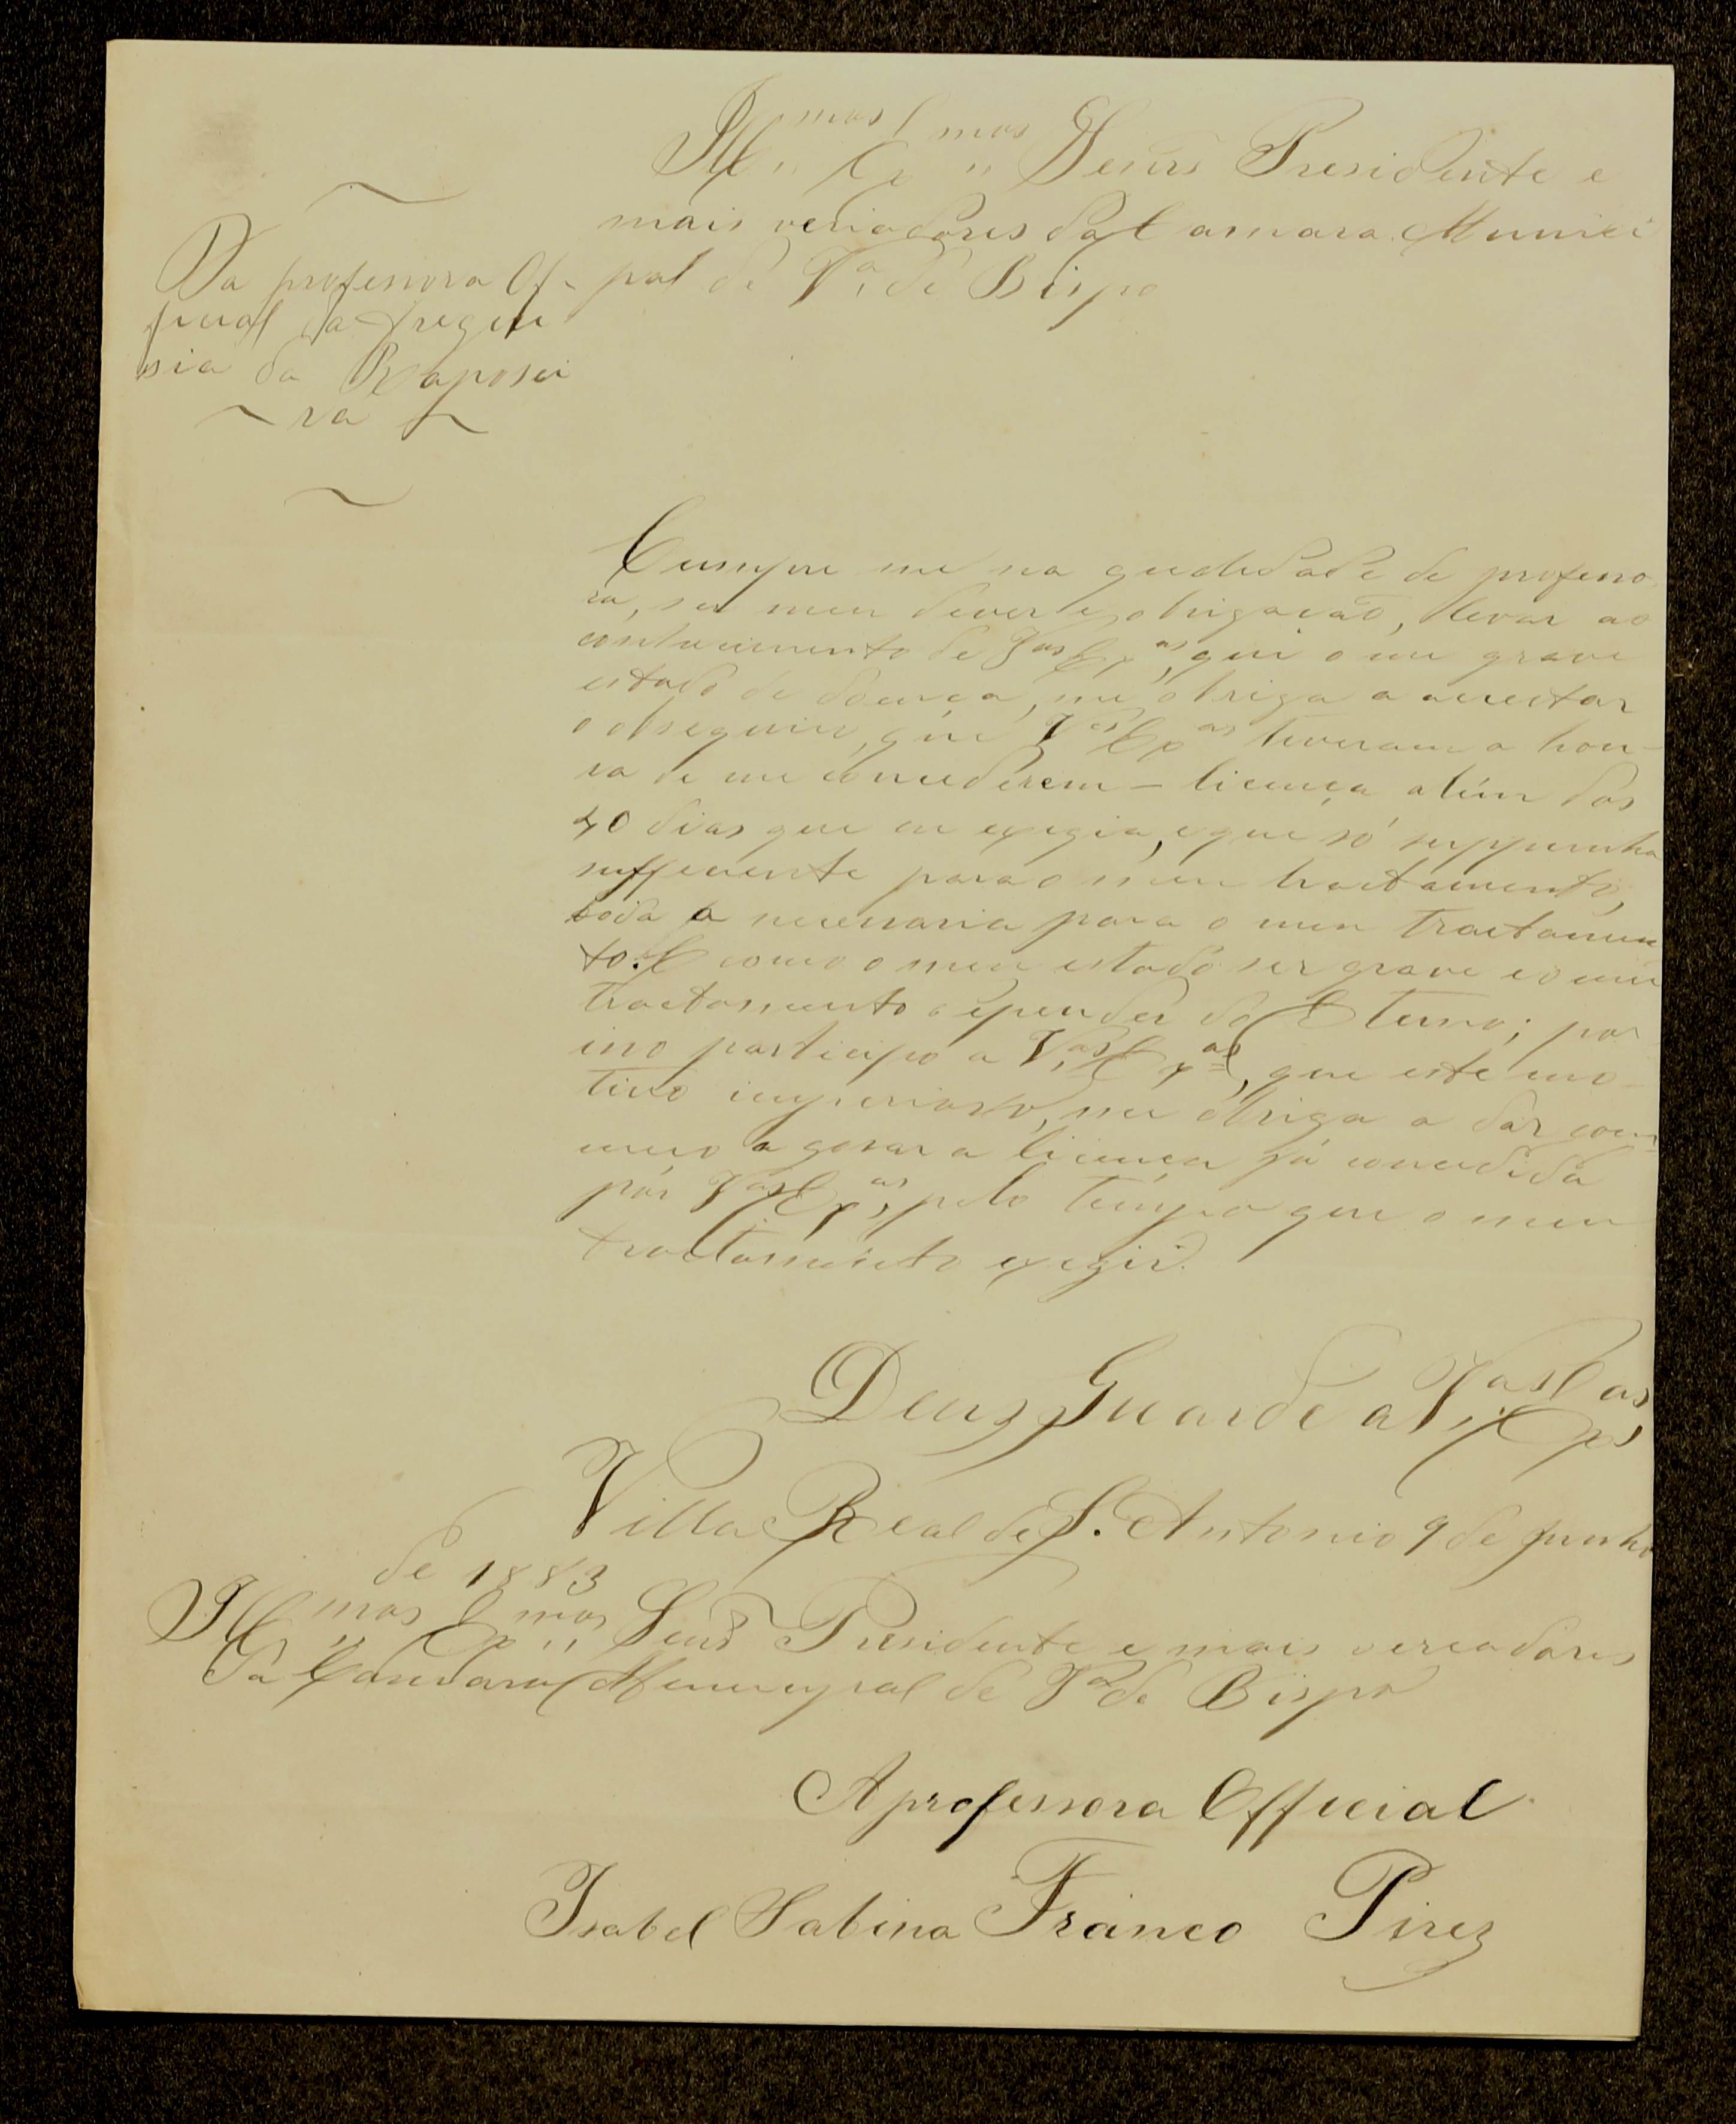 Ill.mos Ex.mos Senrs Presidente e
mais veriadores da Camara Munici
pal de Va. de Bispo
Da professora Of-
ficial da Fregue
sia da Raposei
~ ra ~
Cumpre me na qualidade de professo
ra, ser meu dever e obrigação, levar ao
conhecimento de Vas Exas, que o meu grave
estado de doença, me obriga a acceitar
o obsequio, que Vas Exas tiveram a hon-
ra de me concederem - licença alem dos
40 dias que eu exegia, e que só suppunha
sufficiente para o meu tractamento,
toda a necessaria para o meu tractamen
to. E como o meu estado ser grave e o meu
tractamento depender do Eterno; por
isso participo a Vas Exas, que este mo-
tivo imperioso, me obriga a dar com-
meço a gosar a licença já concedida
por Vas Exas, pelo tempo que o meu
tractamento exegir.
Deus Guarde a Vas Exas
Villa Real de S. Antonio 9 de Junho
de 1883
Ill.mos Ex.mos Senrs Presidente e mais vereadores
da Camara Municipal de Va de Bispo
A professora Official
Isabel Sabina Franco Pirez